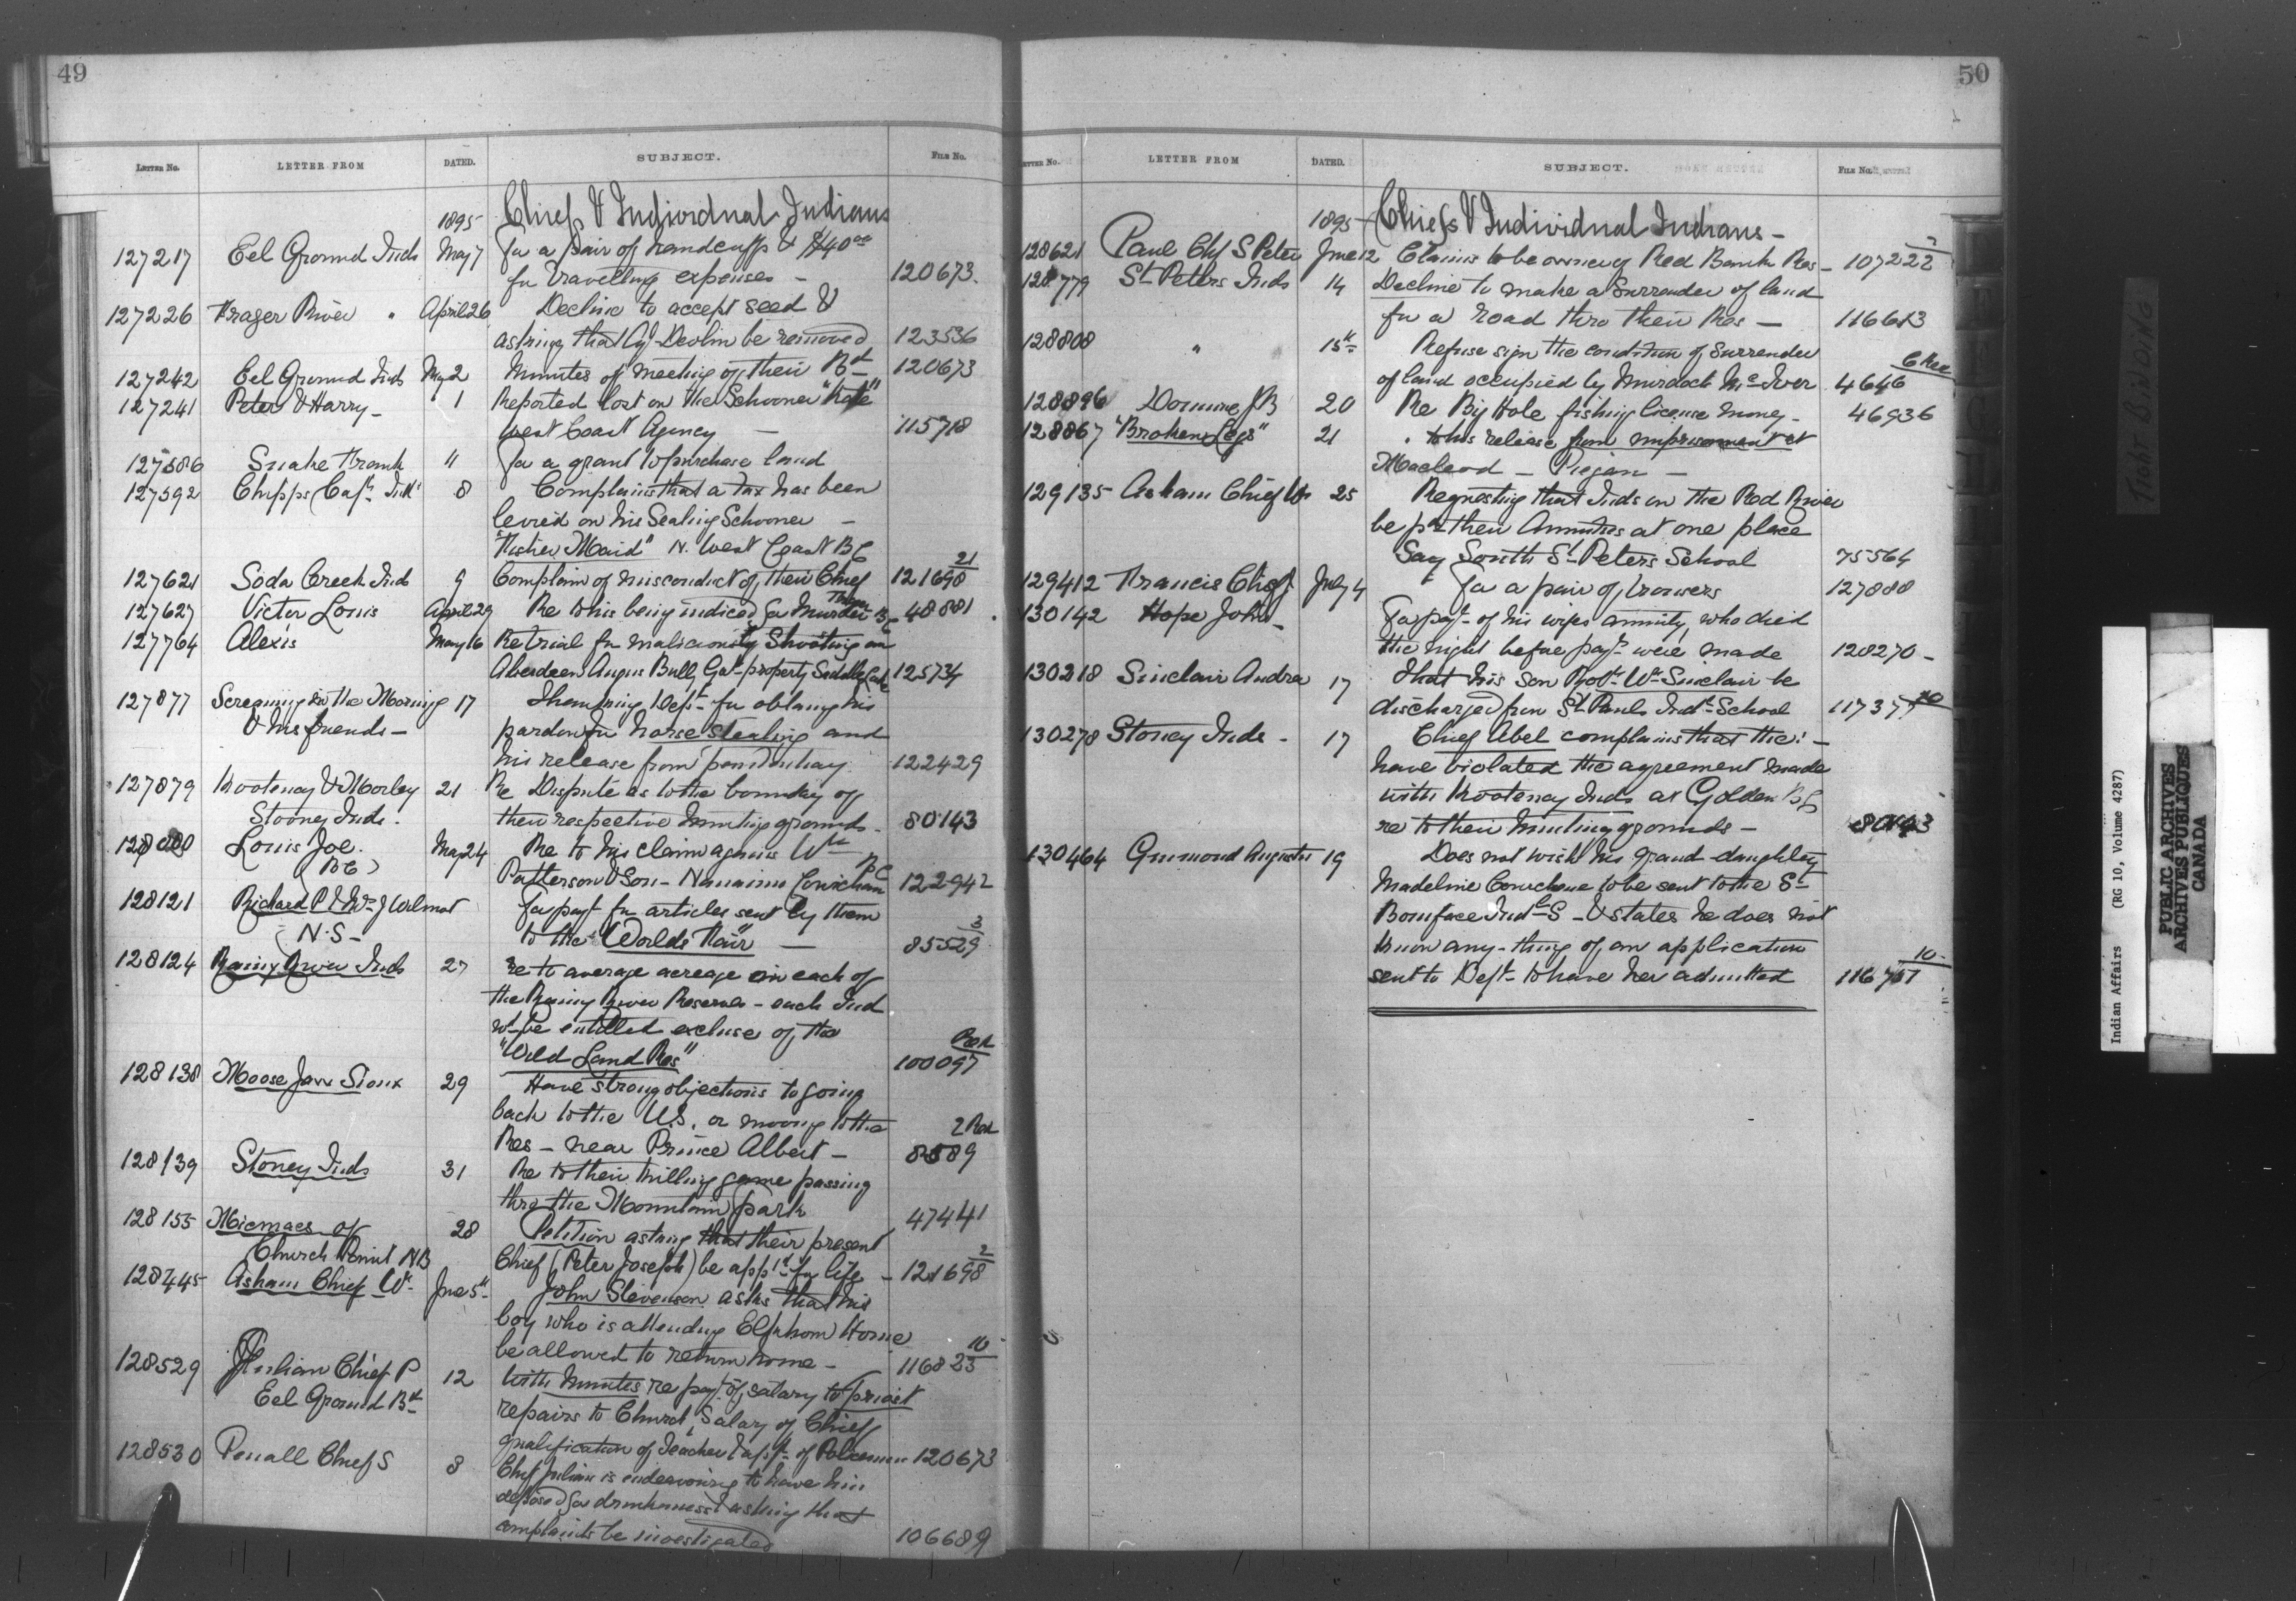 49
LETTER NO. LETTER FROM DATED. SUBJECT. FILE NO.
1895 Chiefs & Individual Indians
127217 Eel Ground Inds May 7 For a pair of handcuffs & $40.00
for travelling expenses - 120673.
127226 Frazer River " April 26 Decline to accept seed &
asking that Agt Devlin be removed 123536
127242 Eel Ground Inds May 2 Minutes of meeting of their Bd 120673
127241 Peter & Harry - 1 Reported lost on the Schooner "Kate"
West Coast Agency - 115718
127586 Snake Frank " For a grant to purchase land
127592 Chipps Capt Indn 8 Complains that a tax has been
levied on his Sealing Schooner -
"Fisher Maid" N. West Coast BC
127621 Soda Creek Inds 9 Complain of misconduct of their Chief 121698 21
127627 Victer Louis April 29 Re to his being indicted for Murder BC 48881
127764 Alexis May 16 Re trial for maliciously Shooting an
Aberdeen Angus Bull, Govt property Saddle Lake 125734
127877 Screaming in the Morning 17 Thanking Dept for obtang his
& his friends - pardon for horse stealing and
his release from penitentiary 122429
127879 Kootenay & Morley 21 Re Dispute as to the boundary of
Stoney Inds. their respective hunting grounds. 80143
Louis Joe. May 24 Re to his claim against Wm
(BC) Patterson & Son - Nanaimo Cowichan BC 122942
128121 Richard P & Wm J Wilmot For payt for articles sent by them
(N.S- to the "Worlds Fair" - 85529 3
128124 Rainy River Inds 27 re to average acreage in each of
the Rainy River Reserves - each Ind
wd be entitled excluse of the
"Wild Land Res" 100097
128138 Moose Jaw Sioux 29 Have strong objections to going
back to the U.S. or moving to the
Res - near Prince Albert - 8589
128139 Stoney Inds 31 Re to their killing game passing
thro the Mountain park 47441
128155 Micmacs of 28 Petition asking that their present
Church Point NB Chief (Peter Joseph) be appd for life - 121698 2
128445 Asham Chief Wm June 5th John Stevenson asks that his
boy who is attending Elkhorn Home
be allowed to return home - 116823 10
128529 Julian Chief P 12 With Minutes re payt of salary to priest
Eel Ground Bd repairs to Church, Salary of Chief
qualification of Teacher & appt of Policeman 120673
128530 Penall Chief S 8 Chief Julian is endeavouring to have him
deposed for drunkenness & asking that
complaints be investigated 106689
50
LETTER NO. LETTER FROM DATED. SUBJECT. FILE NO.
1895 - Chiefs & Individual Indians -
128621 Paul Chf S Peter June 12 Claims to be owner of Red Bank Res - 107222
128779 St Peters Inds 14 Decline to make a Surrender of land
for a road thro their Res - 116613
128808 " " 15th Refuse sign the condition of Surrender
of land occupied by Murdock McIver 4646
128896 Domine JB 20 Re Big Hole fishing license money - 46936
128867 "Broken Legs" 21 " to his release from imprisonment at
Macleod - Piegan -
129135 Asham Chief Wm 25 Requesting that Inds on the Red River
be pd their Annuities at one place
Say South St Peters School 75564
129412 Francis Chief July 4 For a pair of trowsers 127888
130142 Hope John - For payt of his wifes annuity, who died
the night before payts were made 128270 -
130218 Sinclair Andrew 17 That his son Robt Wm Sinclair be
discharged from St Pauls Indl School
130278 Stoney Inds - 17 Chief Abel complains that the: -
have violated the agreement made
with Kootenay Inds at Golden BC
re to their hunting grounds - 80143
130464 Grumond Augustin 19 Does not wish his grand-daughter
Madeline to be sent to the St
Boniface Indl S - & states he does not
know any-thing of an application
sent to Dept to have her admitted 10
TIGHT BINDING
Indian Affairs (RG 10, Volume 4287)
PUBLIC ARCHIVES
ARCHIVES PUBLIQUES
CANADA